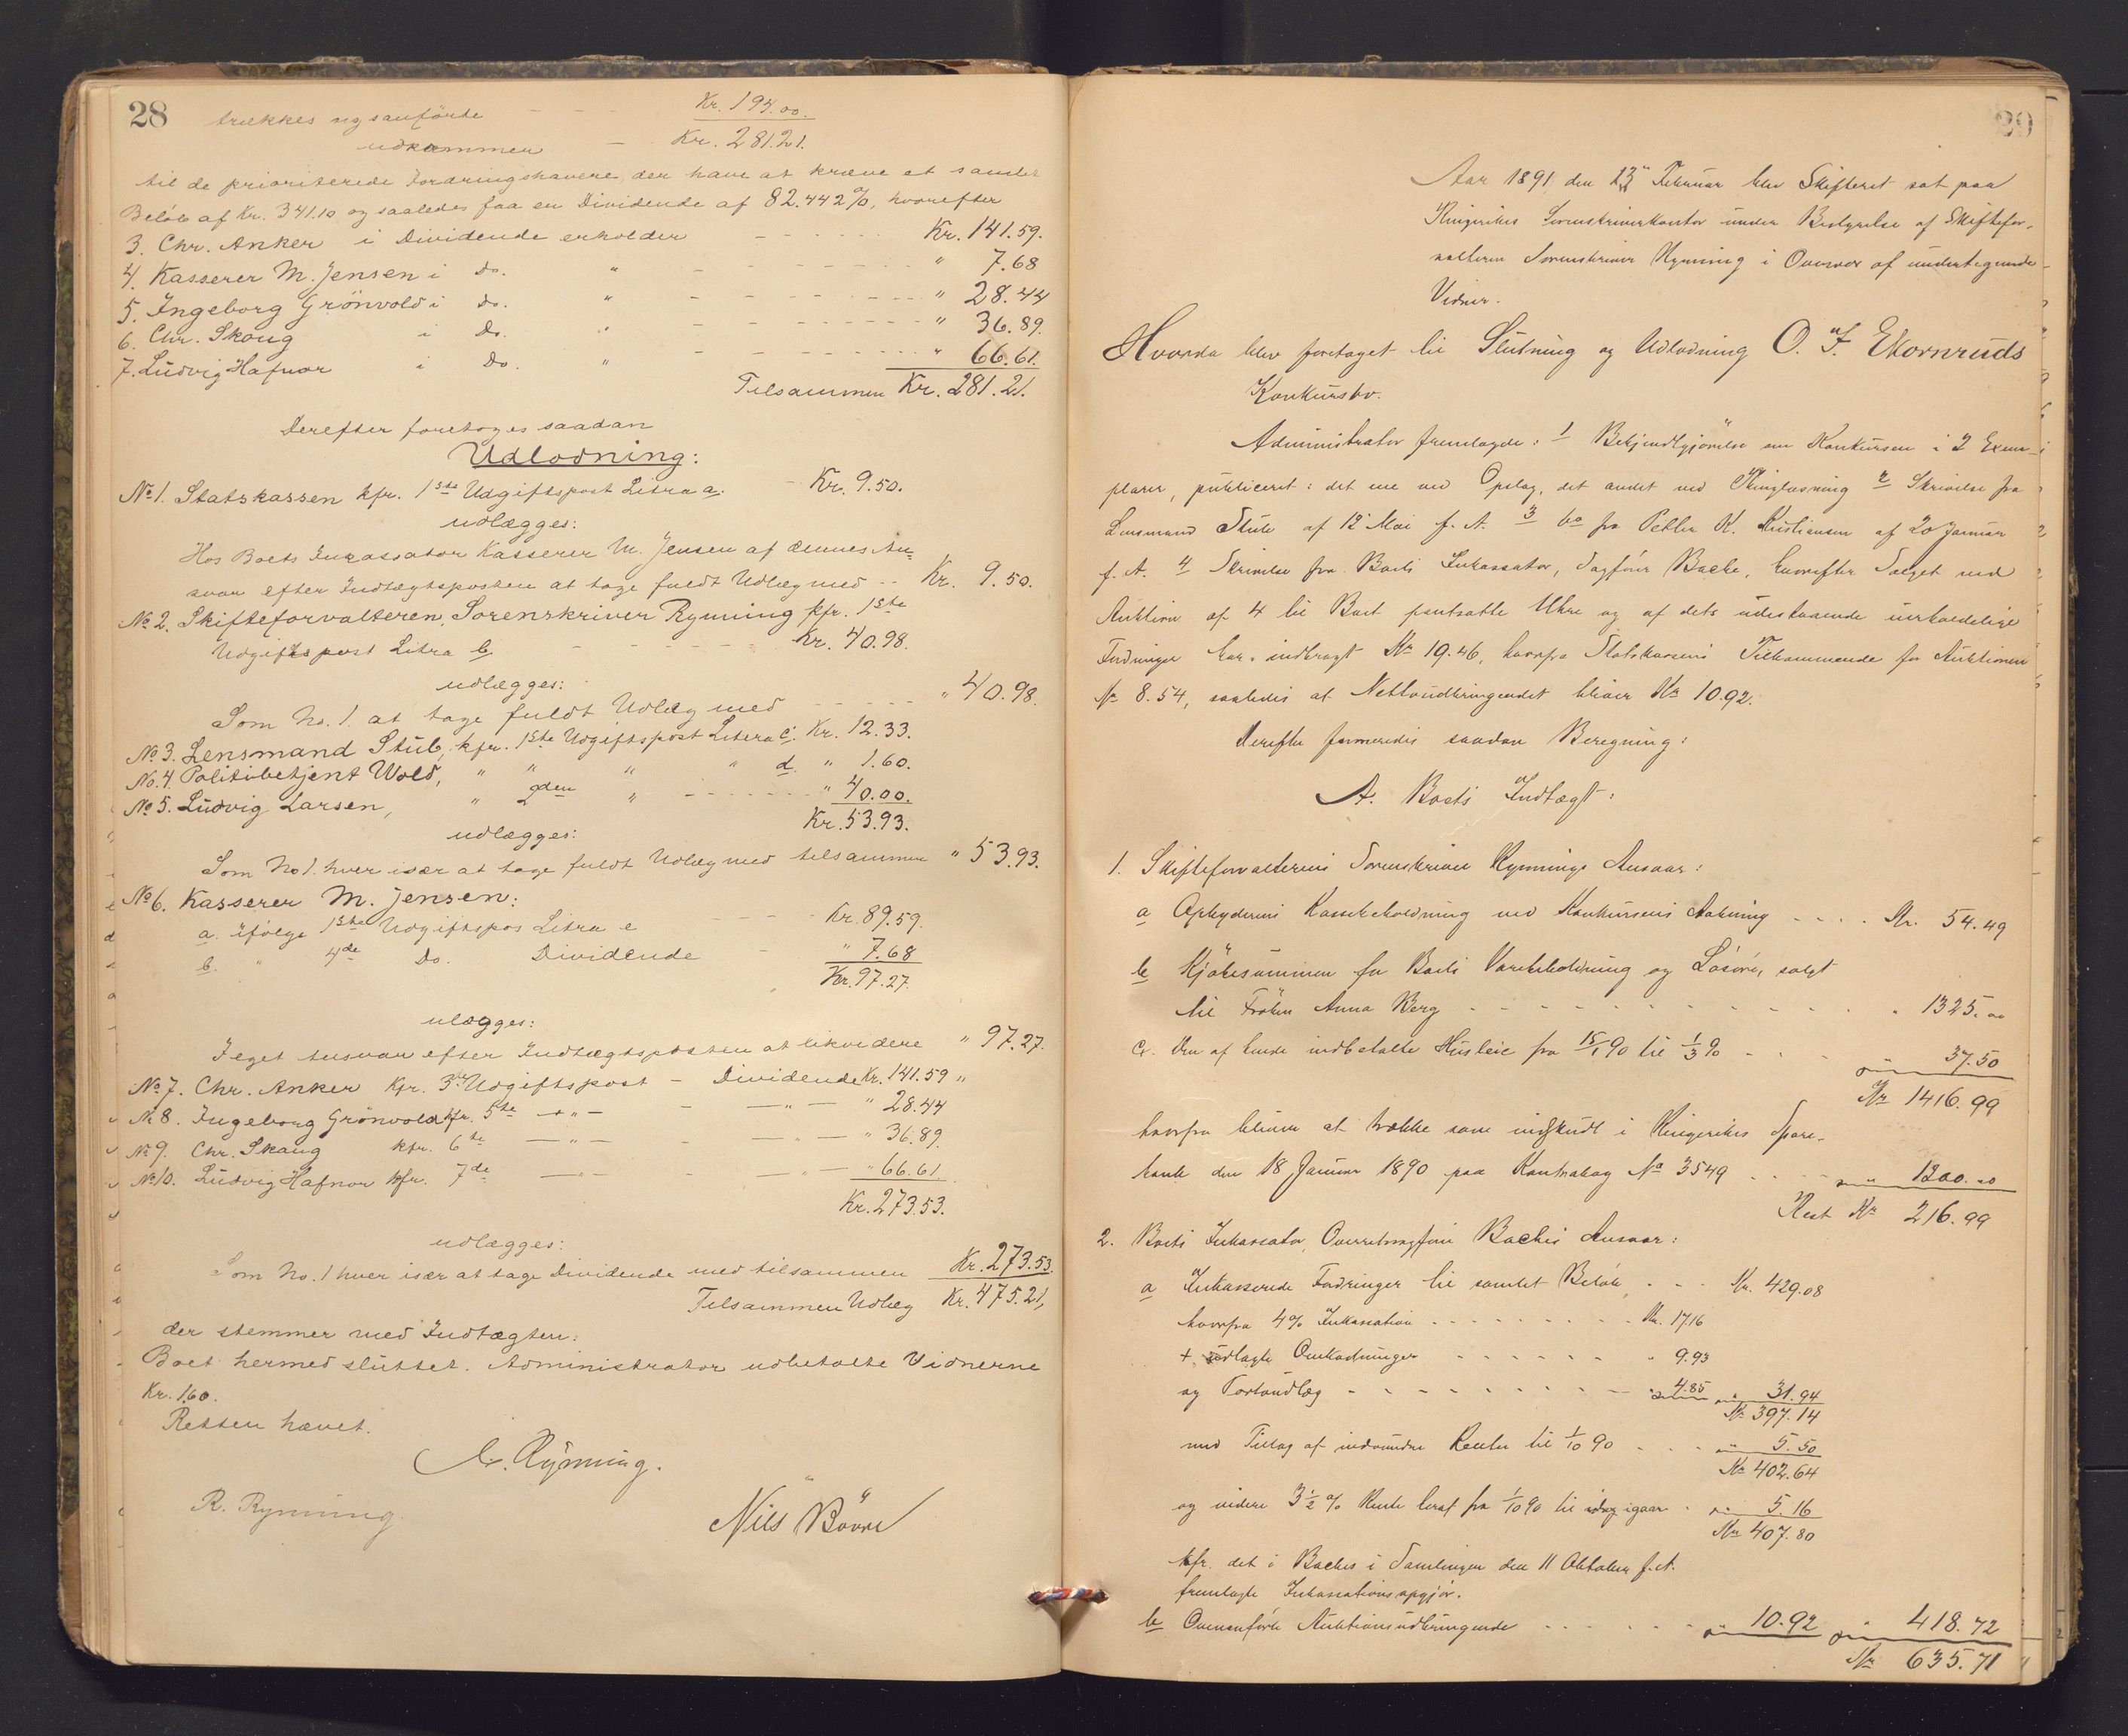 28
trækkes nysanførte - - - Kr. 194.00.
udkommer - Kr. 281.21.
til de prioriterede Fordringshavere, der have at kræve et samlet
Beløb af Kr. 341.10 og saaledes faa en Dividende af 82.442%, hvorefter
3. Chr. Anker i Dividende erholder - - - - - Kr. 141.59.
4. Kasserer M. Jensen i do. " - - - - - " 7.68
5. Ingeborg Grönvold i do. " - - - - - " 28.44
6. Chr. Skoug i Do. " - - - - - " 36.89.
7. Ludvig Hafnor i Do. " - - - - - " 66.61.
Tilsammen Kr. 281.21.
Derefter foretoges saadan
Udlodning:
No 1. Statskassen kfr. 1ste Udgiftspost Litra a. - Kr. 9.50.
udlægges:
Hos Boets Inkassator Kasserer M. Jensen af dennes An-
svar efter Indtægtsposten at tage fuldt Udlæg med - - Kr. 9.50.
No 2. Skifteforvalteren, Sorenskriver Rynning kfr. 1ste
Udgiftspost Litra b. - - - - - Kr. 40.98.
udlægges:
Som No. 1. at tage fuldt Udlæg med - - - - - " 40.98.
No 3. Lensmand Stub, kfr. 1ste Udgiftspost Litera c. Kr. 12.33.
No. 4. Politibetjent Wold, " " " " d. " 1.60.
No 5. Ludvig Larsen, " 2den " - - - - - " 40.00.
Kr. 53.93.
udlægges:
Som No 1. hver især at tage fuldt Udlæg med tilsammen " 53.93.
No 6. Kasserer M. Jensen:
a. ifølge 1ste Udgiftspos Litra e - - - - Kr. 89.59.
b. " 4de Do. Dividende - " 7.68
Kr. 97.27.
ulægges:
I eget Ansvar efter Indtægtsposten at likvidere " 97.27.
No 7. Chr. Anker kfr. 3die Udgiftspost - Dividende Kr. 141.59 "
No 8. Ingeborg Grönvold kfr. 5te - " - - - " - " 28.44
No 9. Chr. Skaug kfr. 6te - " - - " - " 36.89.
No 10. Ludvig Hafnor kfr. 7de - " - - " - " 66.61.
Kr. 273.53.
udlægges:
Som No. 1 hver især at tage Dividende med tilsammen Kr. 273.53.
Tilsammen Udlæg Kr. 475.21,
der stemmer med Indtægten:
Boet hermed sluttet. Administrator udbetalte Vidnerne
Kr. 1.60.
Retten hævet.
Rynning.
R. Rynning. Nils Bövre
29
Aar 1891 den 13 Februar blev Skifteret sat paa
Ringerikes Sorenskriverkontor under Bestyrelse af Skiftefor-
valteren Sorenskriver Rynning i Overvær af undertegnede
Vidner.
Hvorda blev foretaget til Slutning og Udlodning O. F. Ekornruds
Konkursbo.
Administrator fremlagde: 1 Bekjendtgjørelse om Konkursen i 2 Exem-
plarer, publiceret: det ene ved Opslag, det andet ved Thinglæsning 2 Skrivelse fra
Lensmand Stub af 12 Mai f. A. 3 Do fra Peder K. Kristiansen af 20 Januar
f. A. 4 Skrivelse fra Boets Inkassator, Sagfører Bache, hvorefter Salget ved
Auktion af 4 til Boet pantsatte Uhre og af dets udestaaende uerholdelige
Fordringer har indbragt Kr 19.46, hvorfra Statskassens Tilkommende for Auktionen
Kr 8.54, saaledes at Nettoudbringendet bliver Kr 10.92.
Derefter formeredes saadan Beregning:
A. Boets Indtægt:
1. Skifteforvalterens Sorenskriver Rynnings Ansvar:
a Opbyderens Kassebeholdning ved Konkursens Aabning - - - - Kr. 54.49
b Kjøbesummen for Boets Varebeholdning og Løsøre, solgt
til Frøken Anna Berg - - - - - - - - " 1325.00
c. Den af hende indbetalte Husleie fra 15/1 90 til 1/3 90 - - - " 37.50
Kr 1416.99
hvorfra bliver at trække som indskudt i Ringerikes Spare-
bank den 18 Januar 1890 paa Kontrabog No 3549 - - - " 1200.00
Rest Kr 216.99
2. Boets Inkassator, Overretssagfører Baches Ansvar:
a Inkasserede Fordringer til samlet Beløb - - - Kr. 429.08
hvorfra 4% Inkassation - - - - - - - - - Kr. 17.16
+ udlagte Omkostninger - - - - - - " 9.93
og Portoudlæg - - - - - - - - - " 4.85 " 31.94
Kr 397.14
med Tillæg af indvundne Renter til 1/10 90 - - - " 5.50
Kr 402.64
og videre 3 1/2 % Rente heraf fra 1/10 90 til igaar - " 5.16
Kr 407.80
kfr. det i Baches i Samlingen den 11 Oktober f. A.
fremlagte Inkassationsopgjør.
b Ovenanførte Auktionsudbringende - - - - - " 10.92 " 418.72
Kr 635.71